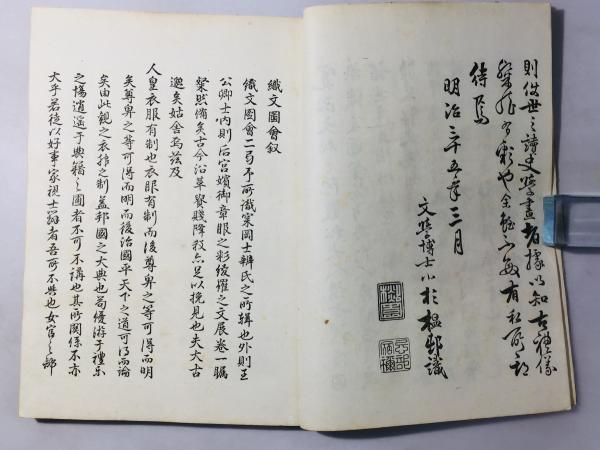 則後世之讀史學畫者據以知古禮儀
待焉
明治三十五年三月
文學博士小杉榲邨識
織文圖會叙
織文圖會二局予所識寀岡士辨氏之所輯也外則王
公卿士内則后宮嬪御章服之彩綾羅之文展卷一矚
粲然備矣古今沿革貴賤降殺亦足以挽見也夫大古
邈矣姑舍焉玆及
人皇衣服有制也衣服有制而後尊卑之等可得而明
矣尊卑之等可得而明而後治國平天下之道可得而論
矣由此觀之衣裳之制益邦國之大典也苟優游于禮樂
之場逍遙于典籍之圃者不可不講也其所關係不亦
大乎若徒以好事家視士辨者吾所不與也女官之部